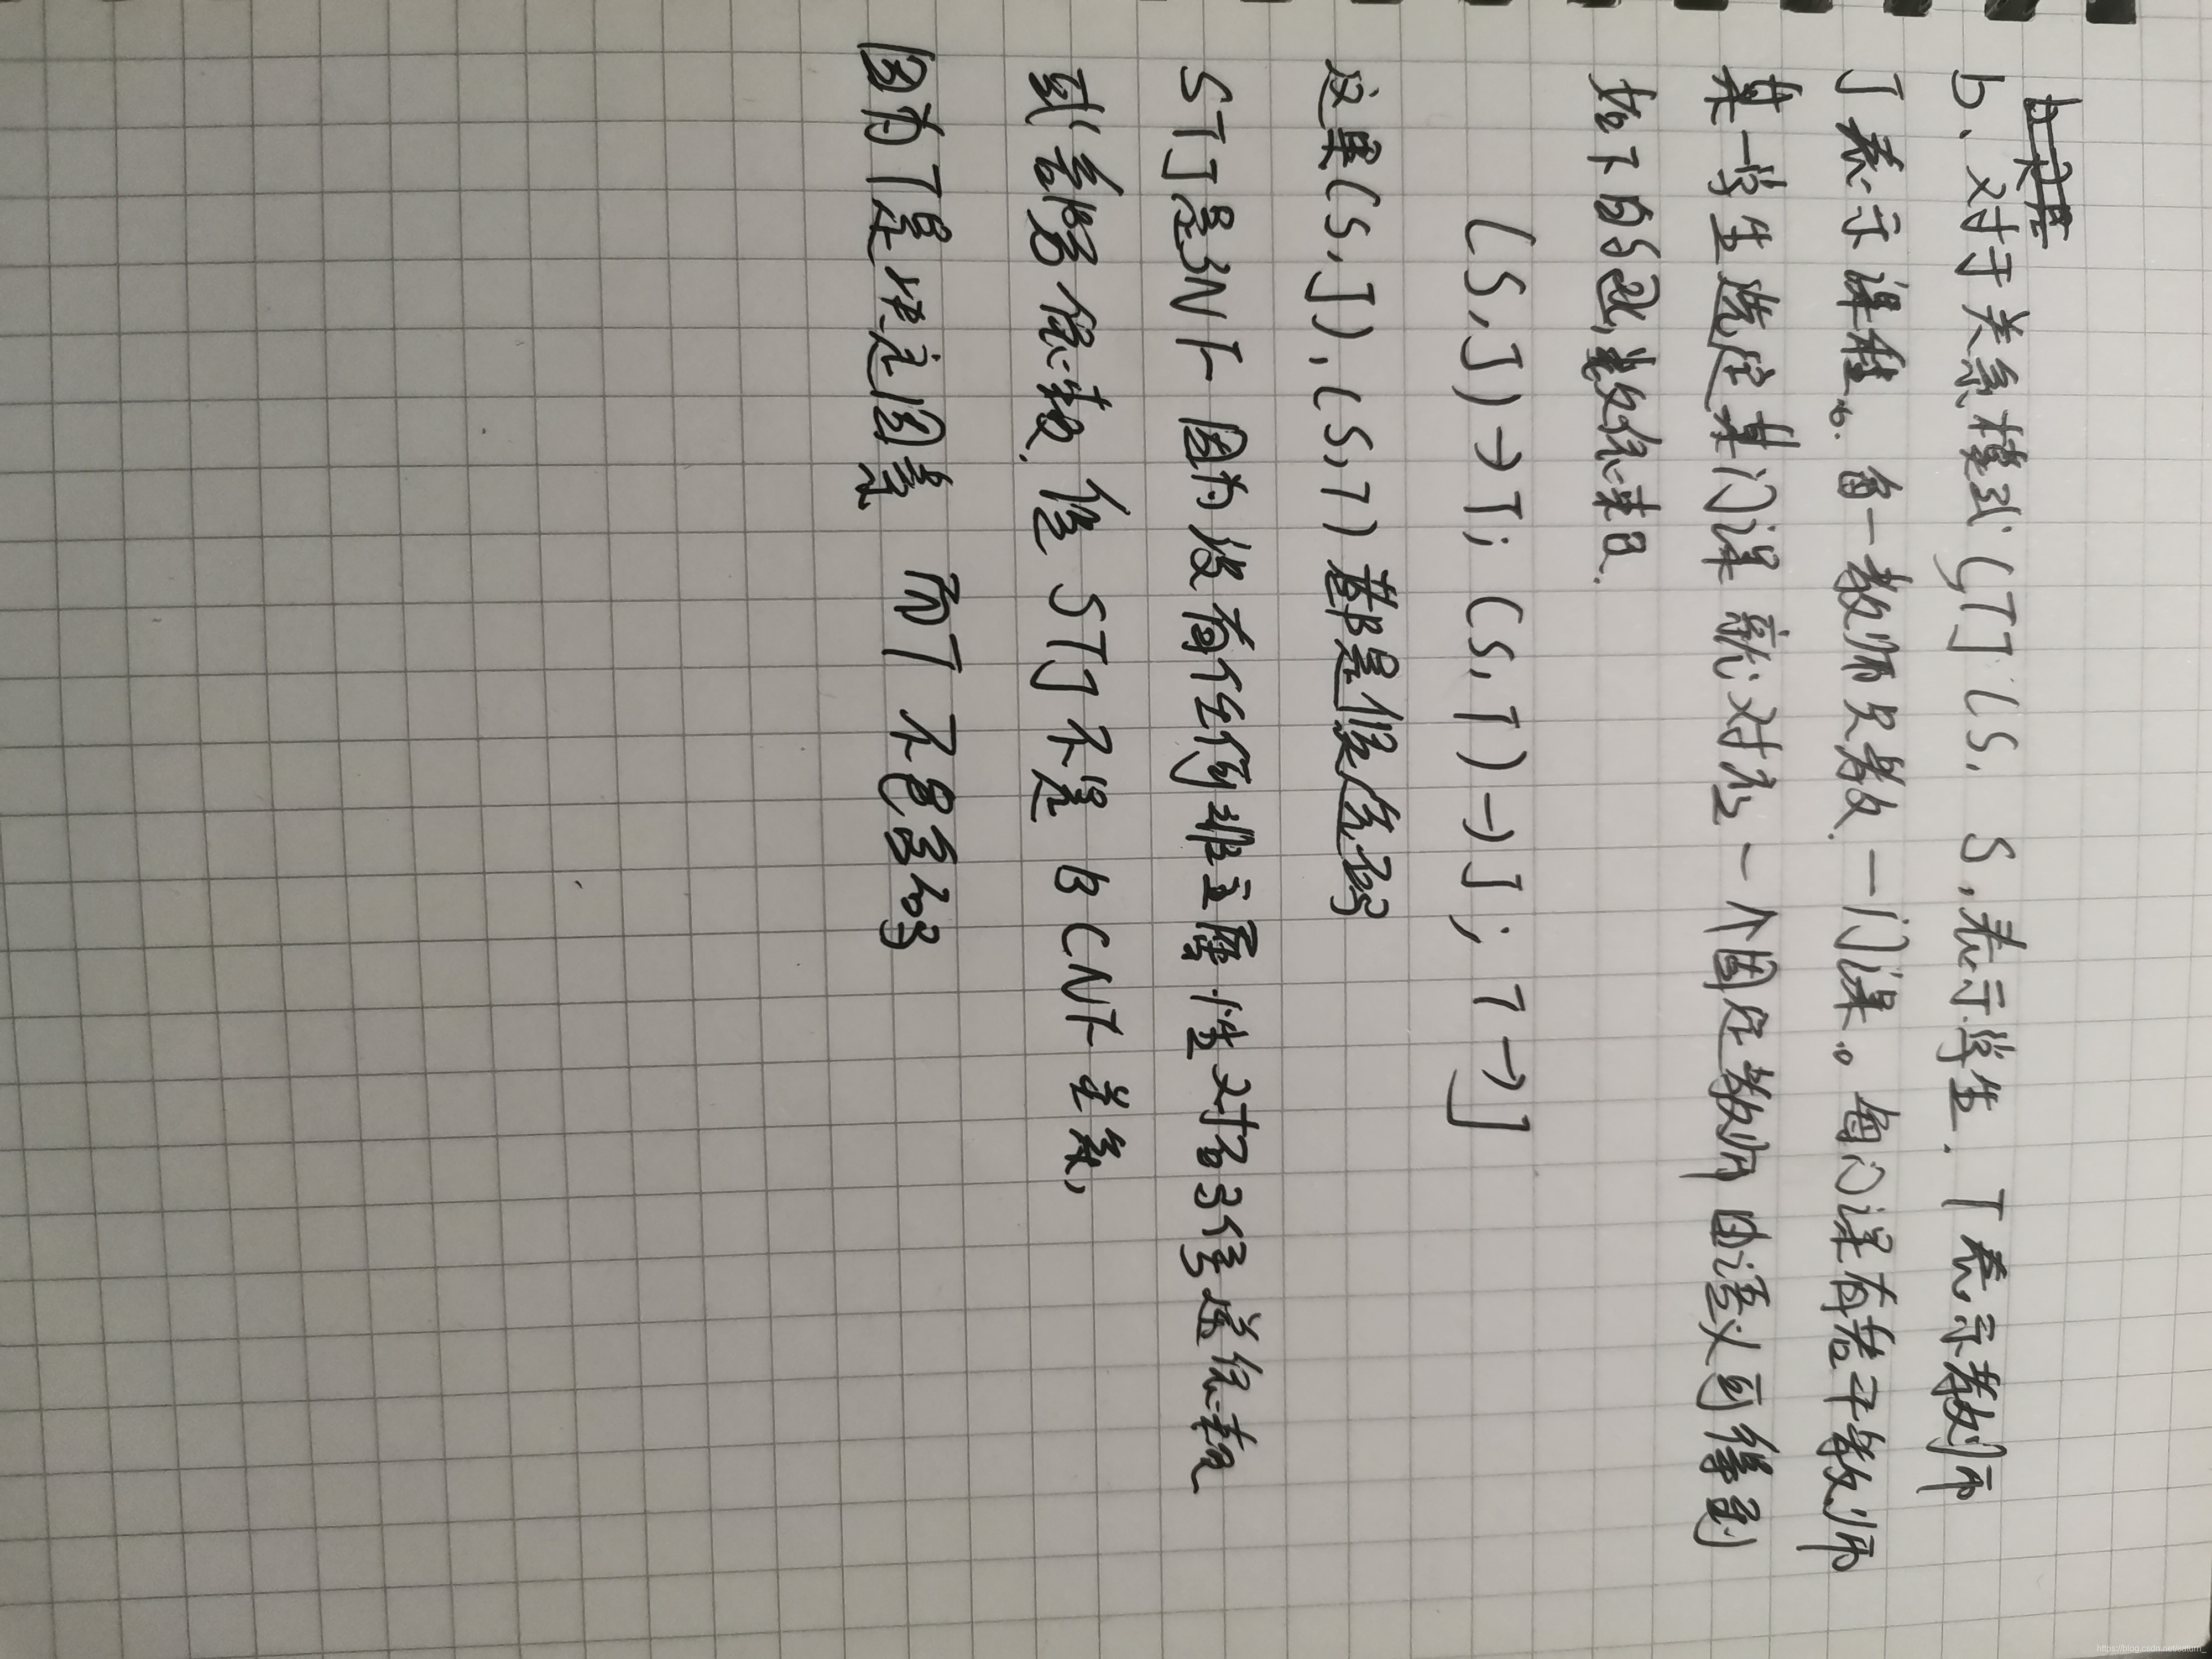 b、对于关系模式STJ(S, S,表示学生. T表示教师
J表示课程。每一教师只教一门课。每门课有若干教师
某一学生选定某门课 就对应一个固定教师 由语义可得到
如下的函数依赖.
(S,J)→T; (S,T)→J; T→J
这里(S,J),(S,T)都是候选码
STJ是3NF 因为没有任何非主属性对码传递依赖
或部分依赖. 但STJ不是BCNF关系,
因为T是决定因素 而T不包含码
https://blog.csdn.net/